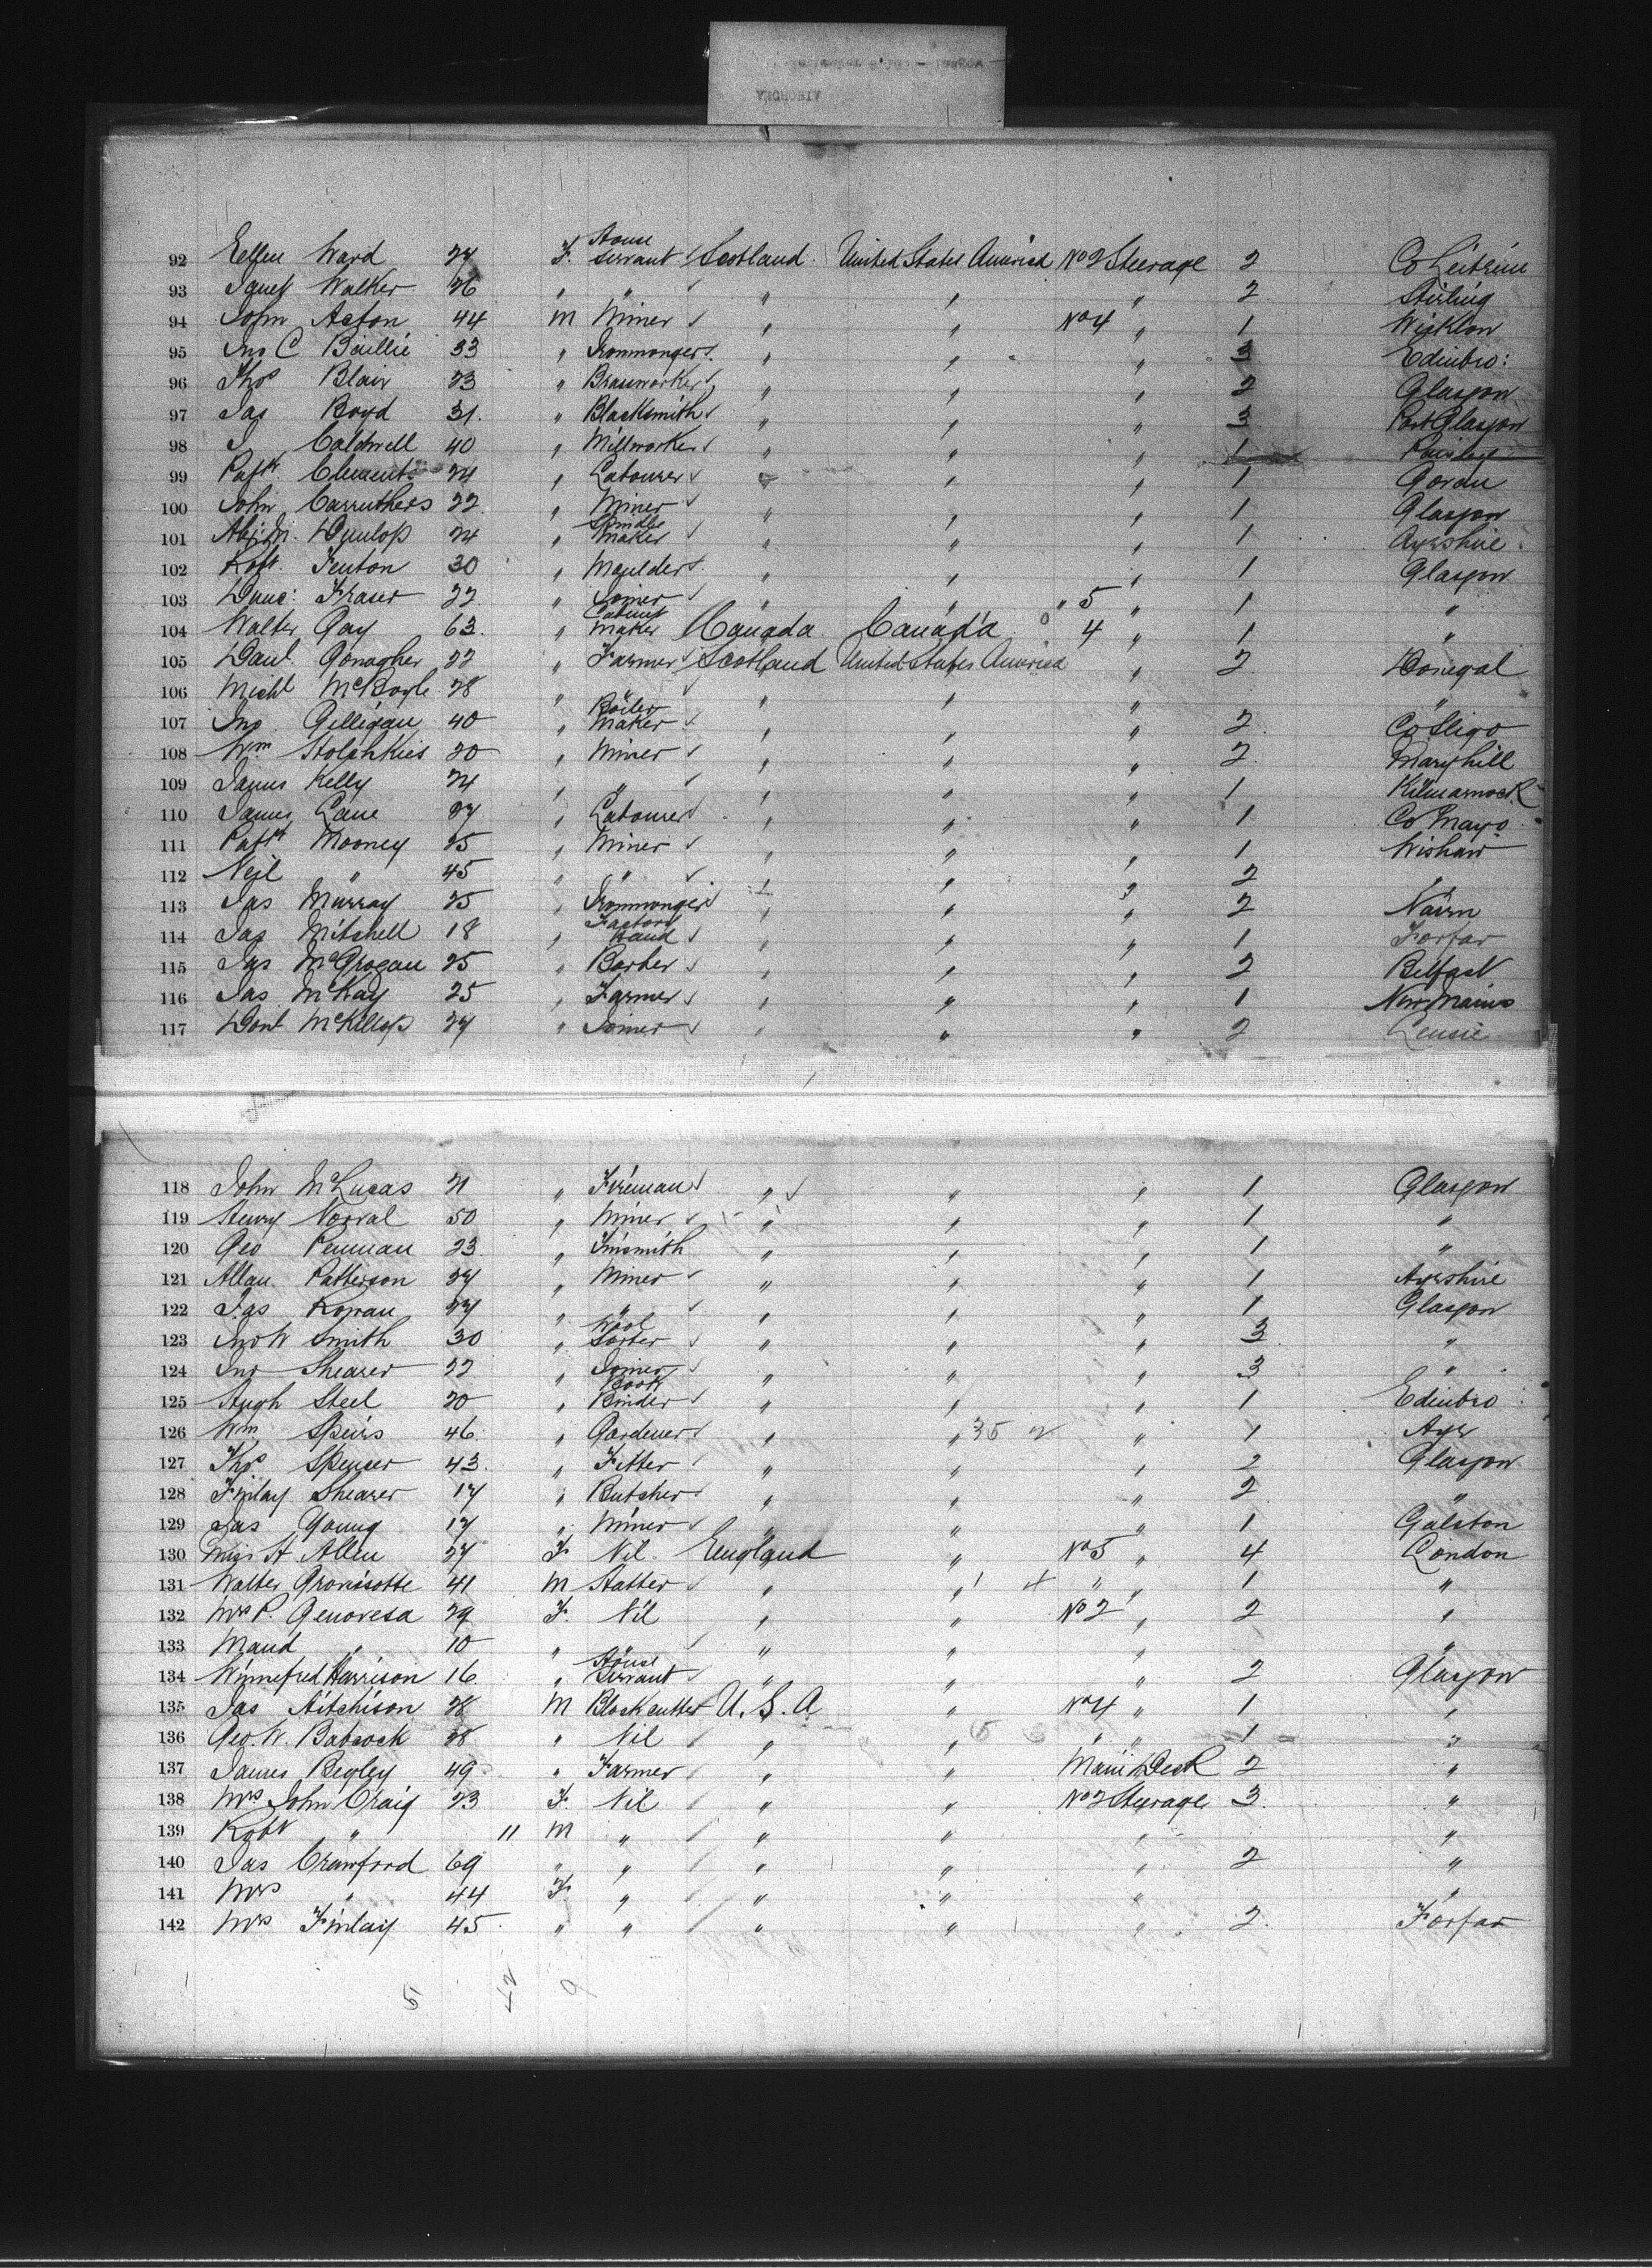 92 Ellen Ward 27 F. House Servant Scotland United States America No 2 Steerage 2 Co Leitrim
93 Janet Walker 26 " " " " " 2 Stirling
94 John Acton 44 M Miner " " No 4 " 1 Wicklow
95 Jno C Baillie 33 " Ironmonger " " " 3 Edinbro:
96 Thos Blair 23 " Brassworker " " " 2 Glasgow
97 Jas Boyd 31. " Blacksmith " " " 3 Port Glasgow
98 J. Caldwell 40 " Millworker " " " 1 Paisley
99 Patk Clement 24 " Labourer " " " 1
100 John Carruthers 22 " Miner " " " 1 Glasgow
101 Dunlop 24 " Spindle Maker " " " 1 Ayrshire
102 Robt. Fenton 30 " Moulder " " " 1 Glasgow
103 Dunc: Fraser 22 " Joiner " " " 5 " 1 "
104 Walter Gay 63. " Cabinet Maker Canada Canada 4 " 1 "
105 Danl. Gonagher 22 " Farmer Scotland United States America " 2 Donegal
106 Michl McBoyle 28 " " " " "
107 Jno Gilligan 40 " Boiler Maker " " " 2 Co Sligo
108 Wm 20 " Miner " " " 2 Maryhill
109 James Kelly 24 " " " " " 1 Kilmarnock
110 James Lane 27 " Labourer " " " 1 Co Mayo
111 Patk Mooney 25 " Miner " " " 1 Wishaw
112 Neil " 45 " " " " " 2 "
113 Jas Murray 25 " Ironmonger " " " 2 Nairn
114 Jas Mitchell 18 " Factory Hand " " " 1 Forfar
115 Jas McGrogan 25 " Barber " " " 2 Belfast
116 Jas McKay 25 " Farmer " " " 1 New Mains
117 Donl McKillop 27 " Joiner " " " 2 Lenzie
118 John McLucas 21 " Fireman " " " 1 Glasgow
119 Henry Norval 50 " Miner " " " 1 "
120 Geo Penman 23 " Tinsmith " " " 1 "
121 Allan Patterson 27 " Miner " " " 1 Ayrshire
122 Jas Rowan 27 " " " " " 1 Glasgow
123 Jno W Smith 30 " Wool Sorter " " " 3 "
124 Jno Shearer 22 " Joiner " " " 3 "
125 Hugh Steel 20 " Book Binder " " " 1 Edinbro
126 Wm Speirs 46 " Gardener " " " 1 Ayr
127 Thos Spenser 43 " Fitter " " " 2 Glasgow
128 Finlay Shearer 17 " Butcher " " " 2 "
129 Jas Young 17 " Miner " " " 1 Galston
130 Miss H Allen 27 F Nil England " No 5 " 4 London
131 Walter 41 M " " " " 1 "
132 Mrs P. Genovesa 29 F. Nil " " No 2 " 2 "
133 Maud " 10 " " " " " "
134 Winnefred Harrison 16 " House Servant " " " 2 Glasgow
135 Jas Aitchison 28 M Block cutter U.S.A " No 4 " 1 "
136 Geo. W. Babcock 28 " Nil " " " " 1 "
137 James Begley 49 " Farmer " " Main Deck 2 "
138 Mrs John Craig 23 F. Nil " " No 2 Steerage 3 "
139 Robt " 11 M " " " " "
140 Jas Crawford 69 " " " " " 2 "
141 Mrs " 44 F " " " " "
142 Mrs Finlay 45. " " " " " 2. Forfar